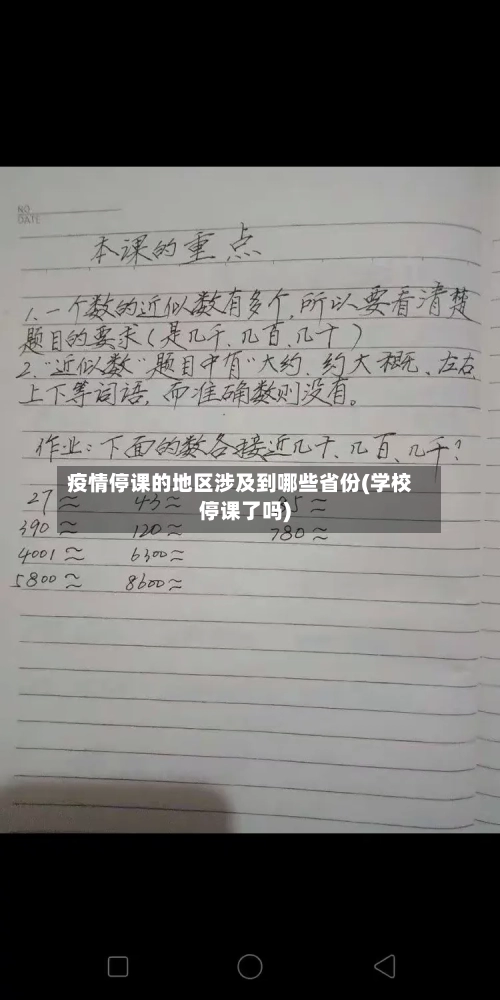 NO
DATE
本课的重点
1.一个数的近似数有多个,所以要看清楚
题目的要求(是几千、几百、几十)
2."近似数"题目中有"大约、约、大概、左右、
上下等词语,而准确数则没有。
作业:下面的数各接近几十、几百、几千?
疫情停课的地区涉及到哪些省份(学校
停课了吗)
27≈ 43≈ 5≈
390≈ 120≈ 780≈
4001≈ 6300≈
5800≈ 8600≈